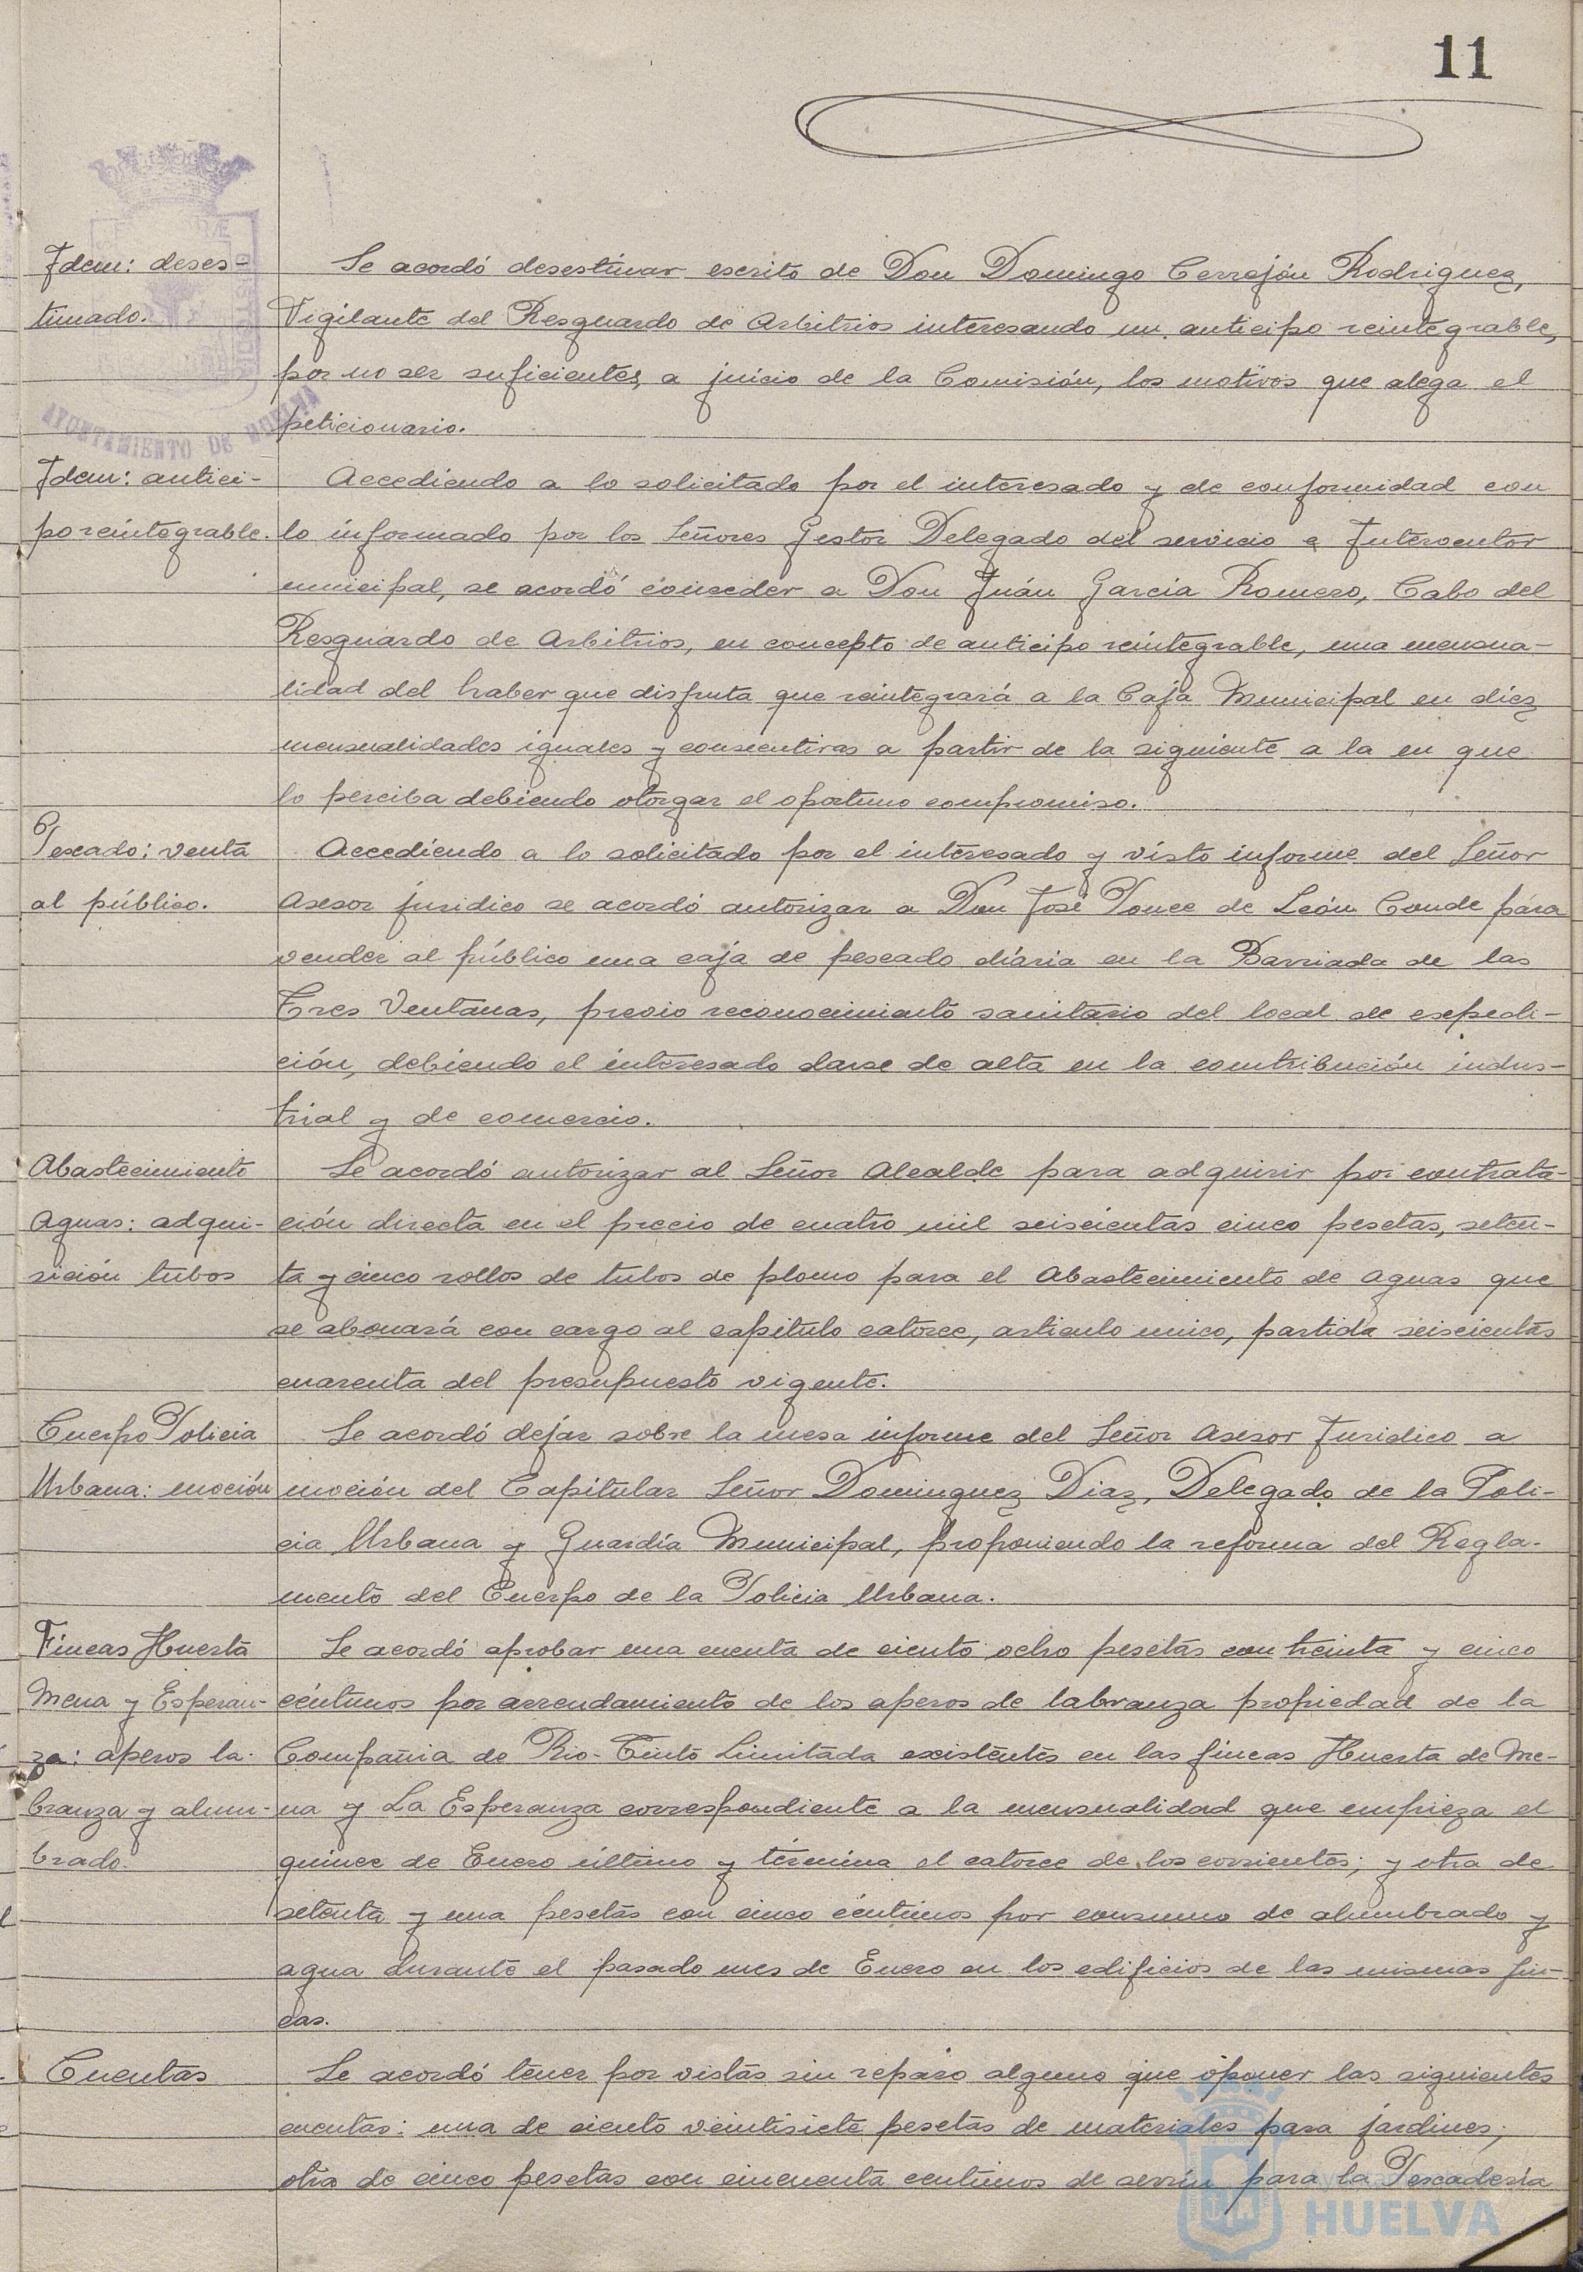 11
Idem: deses-
timado.
Se acordó desestimar escrito de Don Domingo Cerrejón Rodriguez,
Vigilante del Resguardo de Arbitrios interesando un anticipo reintegrable,
por no ser suficientes, a juicio de la Comisión, los motivos que alega el
peticionario.
AYUNTAMIENTO DE HUELVA
Idem: antici-
po reintegrable.
Accediendo a lo solicitado por el interesado y de conformidad con
lo informado por los Señores Gestor Delegado del servicio e Interventor
municipal, se acordó conceder a Don Juán García Romero, Cabo del
Resguardo de Arbitrios, en concepto de anticipo reintegrable, una mensua-
lidad del haber que disfruta que reintegrará a la Caja Municipal en diez
mensualidades iguales y consecutivas a partir de la siguiente a la en que
lo perciba debiendo otorgar el oportuno compromiso.
Pescado: venta
al público.
Accediendo a lo solicitado por el interesado y visto informe del Señor
Asesor jurídico se acordó autorizar a Don José Ponce de León Conde para
vender al público una caja de pescado diária en la Barriada de las
Tres Ventanas, previo reconocimiento sanitario del local de expedi-
ción, debiendo el interesado darse de alta en la contribución indus-
trial y de comercio.
Abastecimiento
Aguas: adqui-
sición tubos
Se acordó autorizar al Señor Alcalde para adquirir por contrata-
ción directa en el precio de cuatro mil seiscientas cinco pesetas, seten-
ta y cinco rollos de tubos de plomo para el Abastecimiento de Aguas que
se abonará con cargo al capítulo catorce, articulo unico, partida seiscientas
cuarenta del presupuesto vigente.
Cuerpo Policia
Urbana: moción
Se acordó dejar sobre la mesa informe del Señor Asesor Juridico a
moción del Capitular Señor Dominguez Diaz, Delegado de la Poli-
cia Urbana y Guardía Municipal, proponiendo la reforma del Regla-
mento del Cuerpo de la Policia Urbana.
Fincas Huerta
Mena y Esperan-
za: aperos la-
branza y alum-
brado.
Se acordó aprobar una cuenta de ciento ocho pesetas con treinta y cinco
céntimos por arrendamiento de los aperos de labranza propiedad de la
Compañia de Rio-Tinto Limitada existentes en las fincas Huerta de Me-
na y La Esperanza correspondiente a la mensualidad que empieza el
quince de Enero último y términa el catorce de los corrientes; y otra de
setenta y una pesetas con cinco céntimos por consumo de alumbrado y
agua durante el pasado mes de Enero en los edificios de las mismas fin-
cas.
Cuentas
Se acordó tener por vistas sin reparo alguno que oponer las siguientes
cuentas: una de ciento veintisiete pesetas de materiales para jardines;
otra de cinco pesetas con cincuenta centimos de serrín para la Pescadería
HUELVA